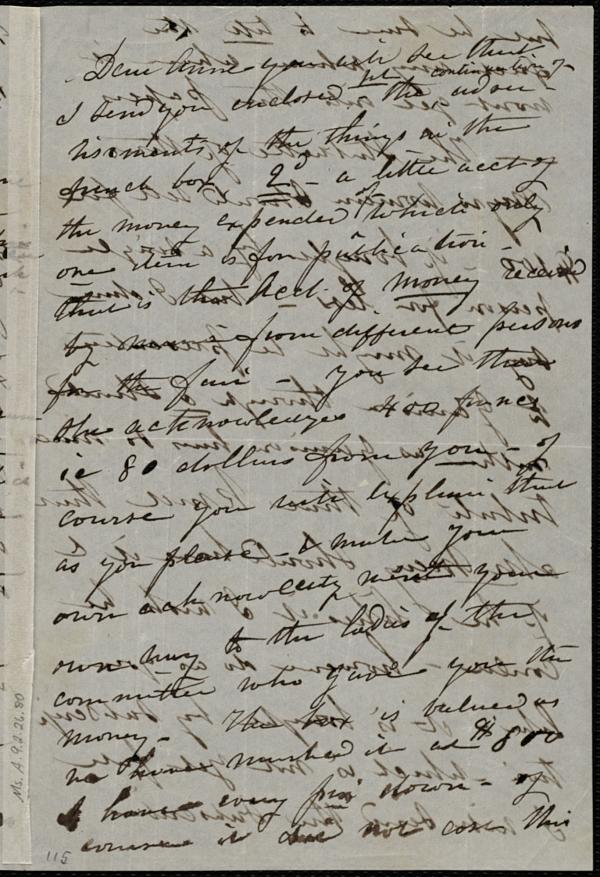 Dear Anne you will see that
I send you enclosed the continuation of
the adver
tisements of the things in the
french box 2d - a little acct of
the money expended of which only
one item is for publication -
that is the Acct. of money received
by from different persons
for the fair - you see that
she acknowledges 400 francs
ie 80 dollars from you - of
course you will explain that
as you please - & make your
own acknowledgment your
own way to the ladies of the
committee who gave you the
money - The box is valued as
we have marked it at $800
I have every pin down - of
course it did not cost this
Ms. A.9.2.26.80
115